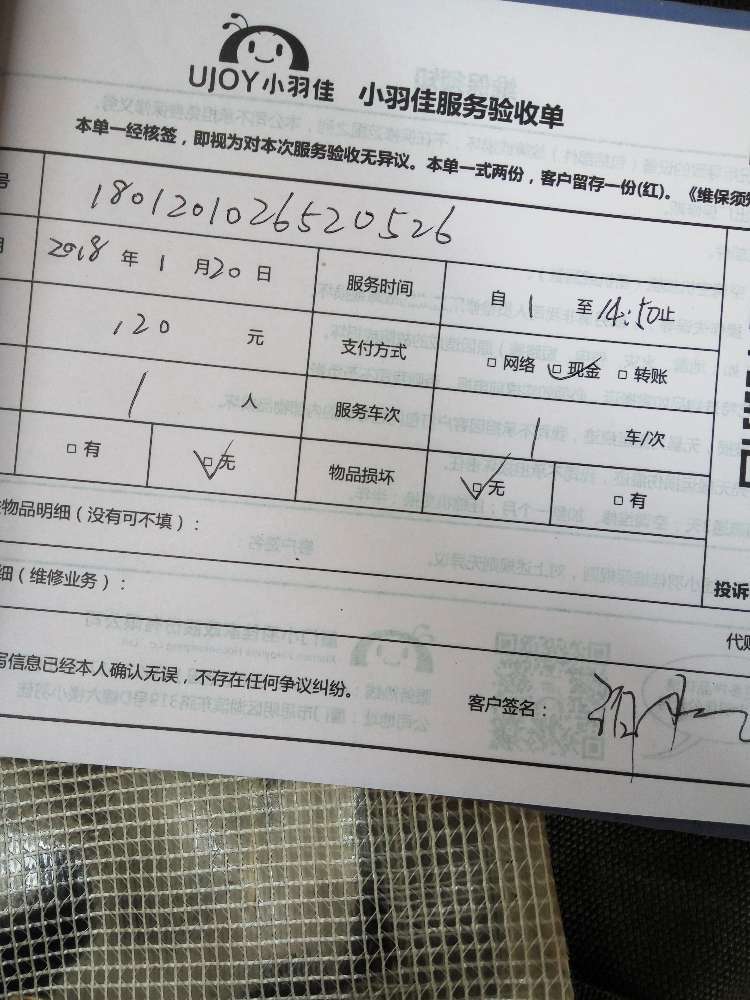 UJOY小羽佳 小羽佳服务验收单
本单一经核签，即视为对本次服务验收无异议。本单一式两份，客户留存一份(红)。《维保须知
号 1801201026520526
2018 年 1 月 20 日 服务时间 自 1 至 14:50 止
120 元 支付方式 □ 网络 □ 现金 □ 转账
1 人 服务车次 1 车/次
□ 有 □ 无 物品损坏 □ 无 □ 有
物品明细（没有可不填）：
细（维修业务）：
投诉
代购
写信息已经本人确认无误，不存在任何争议纠纷。
客户签名：